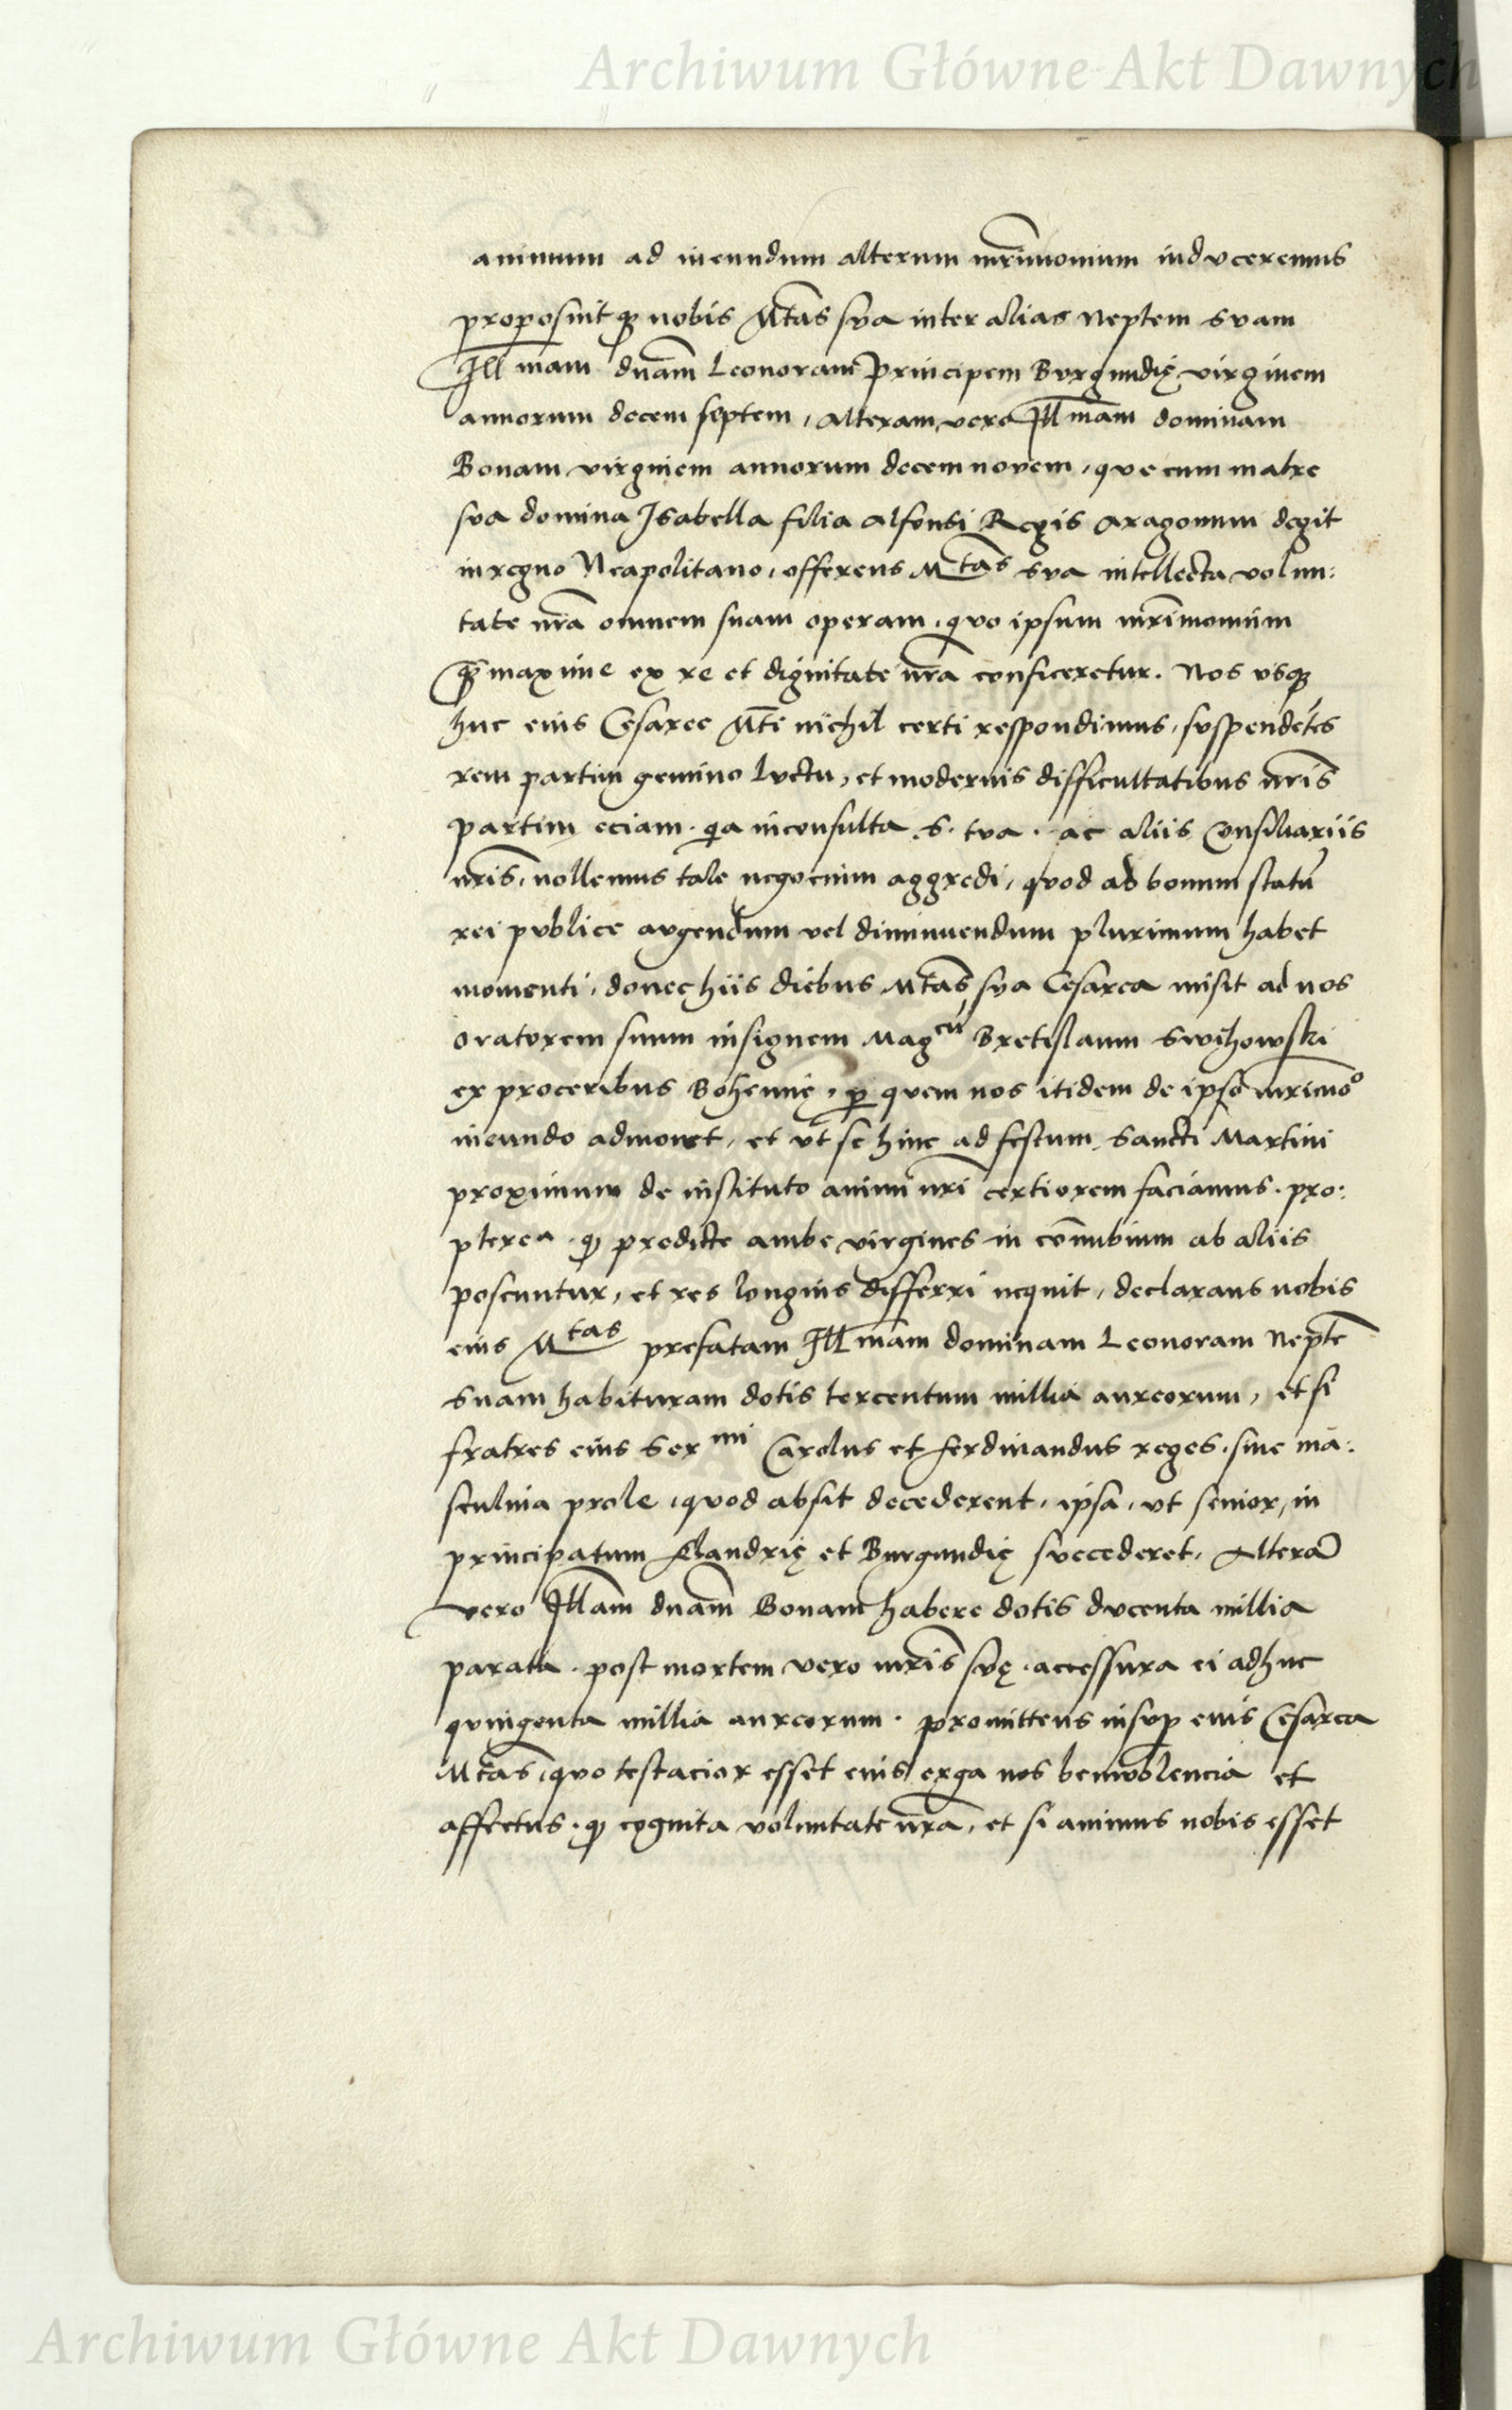 Archiwum Główne Akt Dawnych
animum ad ineundum alterum mr̃imonium induceremus
proposuitqꝫ nobis Mtãs sva inter alias Neptem svam
Illmam dnam̃ Leonoram Principem Burgundię virginem
annorum decem septem, alteram vero Illmam̃ dominam
Bonam virginem annorum decemnovem, que cum matre
sva domina Isabella filia Alfonsi Regis Aragonum degit
in regno Neapolitano, offerens Mtas̃ sva intellecta volun:
tate nrã omnem suam operam, qvo ipsum mr̃imonium
qꝫ̃ maxime ex re et dignitate nrã conficeretur. Nos vsqꝫ
huc eius Cesaree Mtĩ nichil certi respondimus, svspendẽtes
rem partim gemino lvctu, et modernis difficultatibus nrĩs
partim eciam. qa inconsulta S. tva. ac aliis Consiliariis
nrĩs, nollemus tale negocium aggredi, qvod ad bonum statũ
rei pvblice avgendum vel diminuendum plurimum habet
momenti, donec hiis diebus Mtas̃ sva Cesarea misit ad nos
oratorem suum insignem Mag^cũ Bretislaum Swihowski
ex proceribus Bohemię, ꝑ quem nos itidem de ipso mr̃imo^o
ineundo admonet, et vt se hinc ad festum Sancti Martini
proximum de instituto animi nrĩ certiorem faciamus. pro:
pterea. qꝫ predicte ambe virgines in cõnubium ab aliis
poscuntur, et res longius differri nequit, declarans nobis
eius M^tas prefatam Illmam̃ dominam Leonoram Neptẽ
Suam habituram dotis tercentum millia aureorum, et si
fratres eius Ser^mi Carolus et Ferdinandus reges. sine ma:
sculina prole, qvod absit decederent, ipsa, vt senior, in
principatum Flandrię et Burgundię svccederet, Alterã
vero Illam̃ dnam̃ Bonam habere dotis dvcenta millia
parata. post mortem vero mrĩs svę. accessura ei adhuc
qvingenta millia aureorum. promittens insvꝑ eius Cesarea
Mtas̃, qvo testacior esset eius erga nos benivolencia et
affectus. qꝫ cognita voluntate nrã, et si animus nobis esset
Archiwum Główne Akt Dawnych